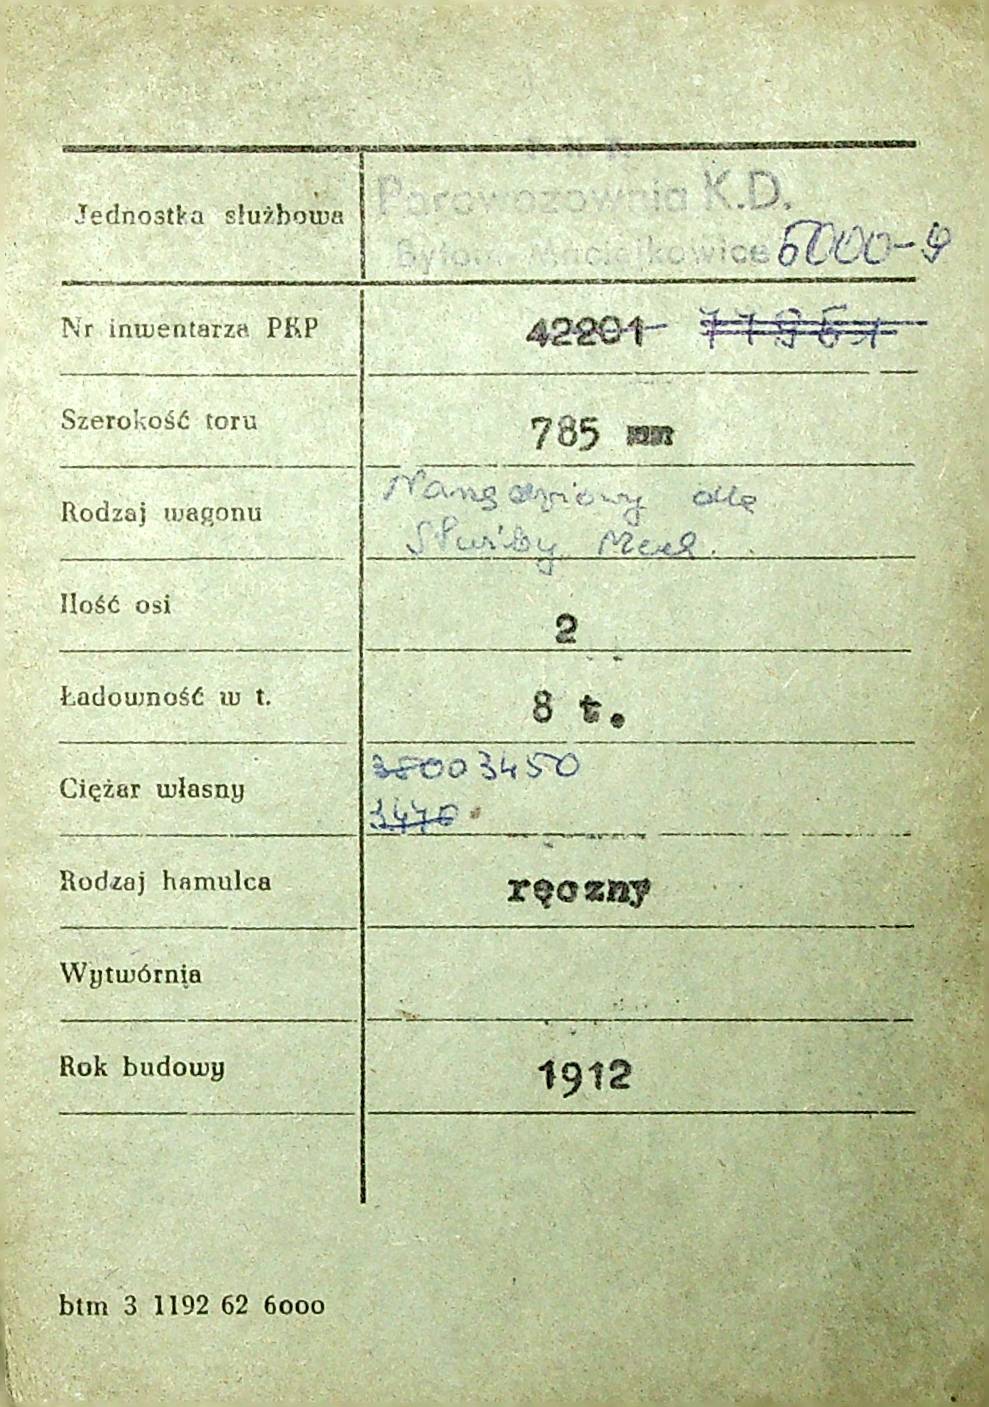 P.K.P.
Jednostka służbowa Parowozownia K.D.
Bytom Maciejkowice 5000-9
Nr inwentarza PKP 42201 77851
Szerokość toru 785 mm
Rodzaj wagonu Narzędziowy dla
Służby Mech.
Ilość osi 2
Ładowność w t. 8 t.
Ciężar własny 3800 3450
3470
Rodzaj hamulca ręczny
Wytwórnia
Rok budowy 1912
btm 3 1192 62 6000